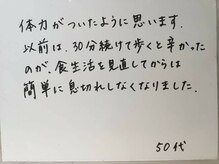 体力がついたように思います.
以前は、30分続けて歩くと辛かった
のが、食生活を見直してからは
簡単に息切れしなくなりました.
50代